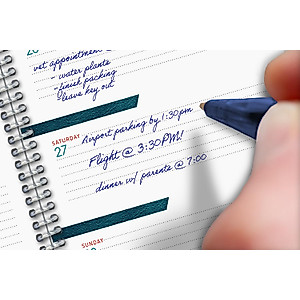 vet appointment
- water plants
- finish packing
leave key out
SATURDAY
27
Airport parking by 1:30pm
Flight @ 3:30PM!
dinner w/ parents @ 7:00
SUNDAY